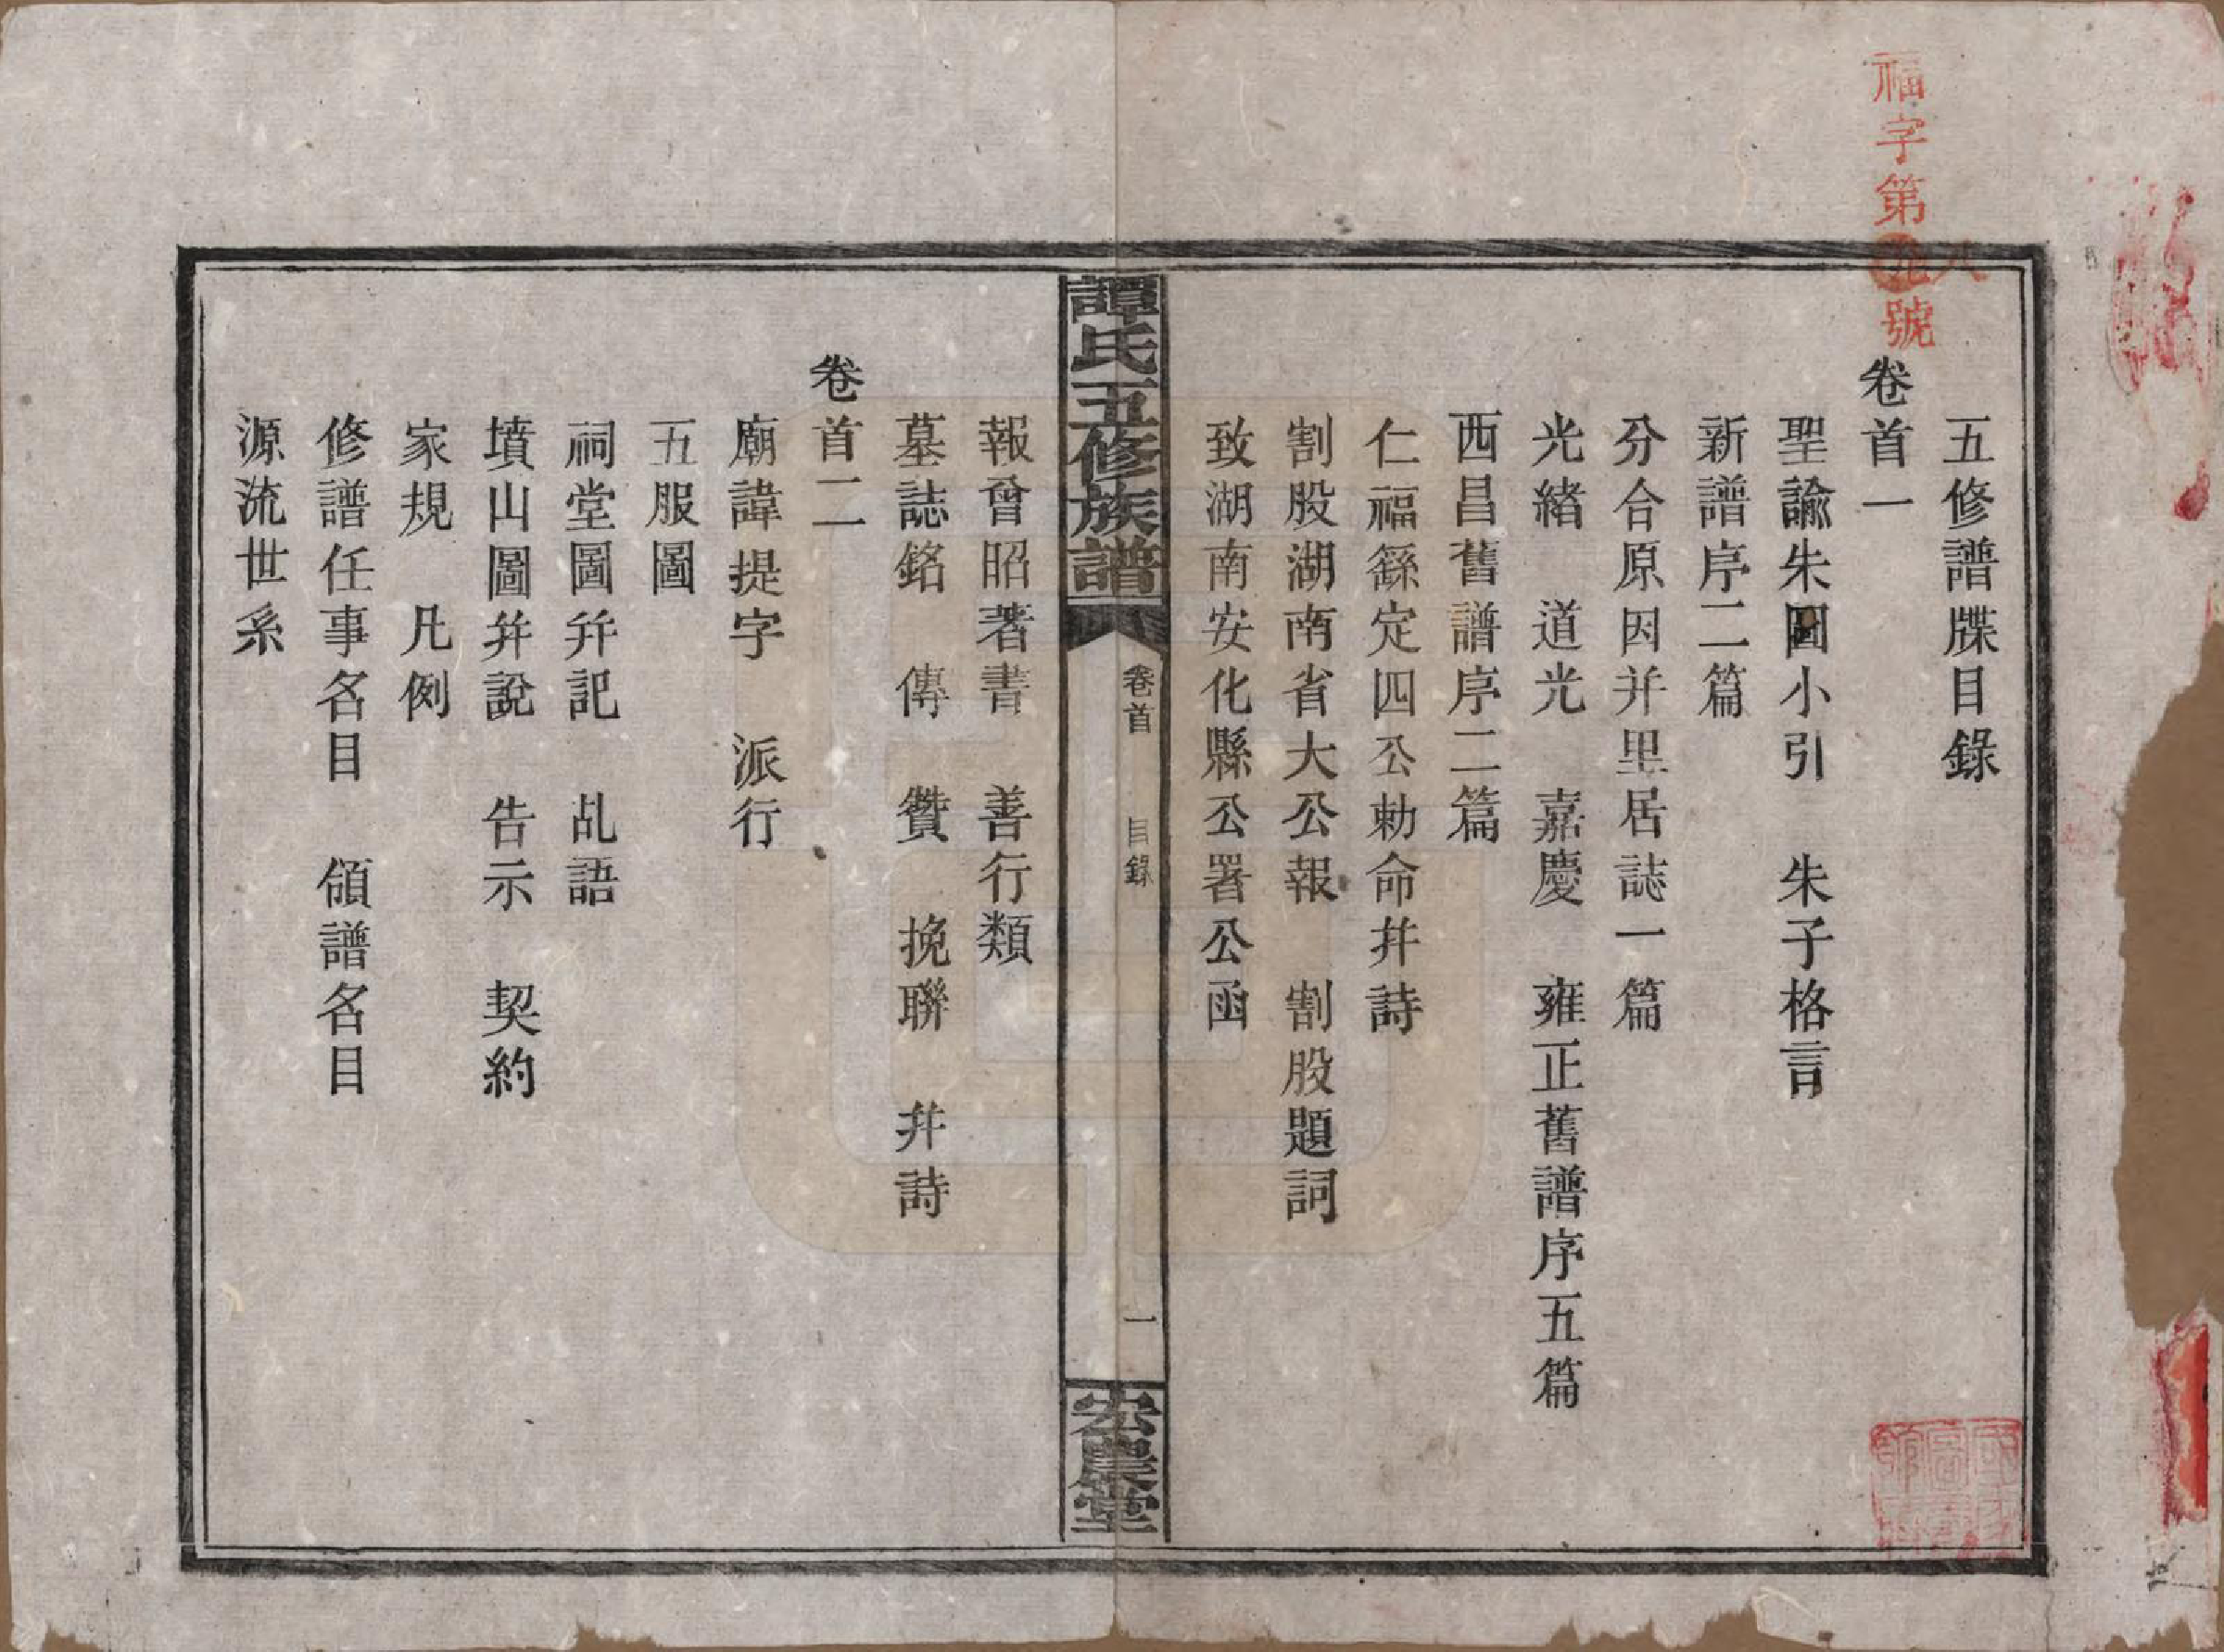 福字第 號
五修譜牒目錄
卷首一
聖諭朱圖小引　朱子格言
新譜序二篇
分合原因并里居誌一篇
光緒　道光　嘉慶　雍正舊譜序五篇
西昌舊譜序二篇
仁福繇定四公勅命幷詩
割股湖南省大公報　割股題詞
致湖南安化縣公署公函
譚氏五修族譜
卷首　目錄
一
宏農堂
報曾昭著書　善行類
墓誌銘　傳　贊　挽聯　幷詩
卷首二
廟諱提字　派行
五服圖
祠堂圖幷記　乩語
墳山圖幷說　告示　契約
家規　凡例
修譜任事名目　領譜名目
源流世系